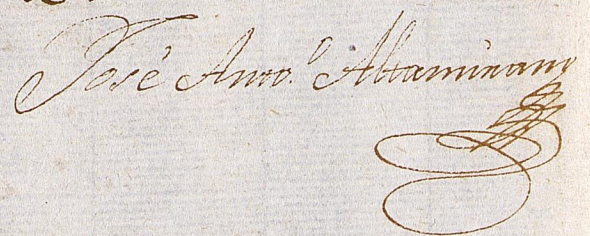 José Anto.º Altamirano